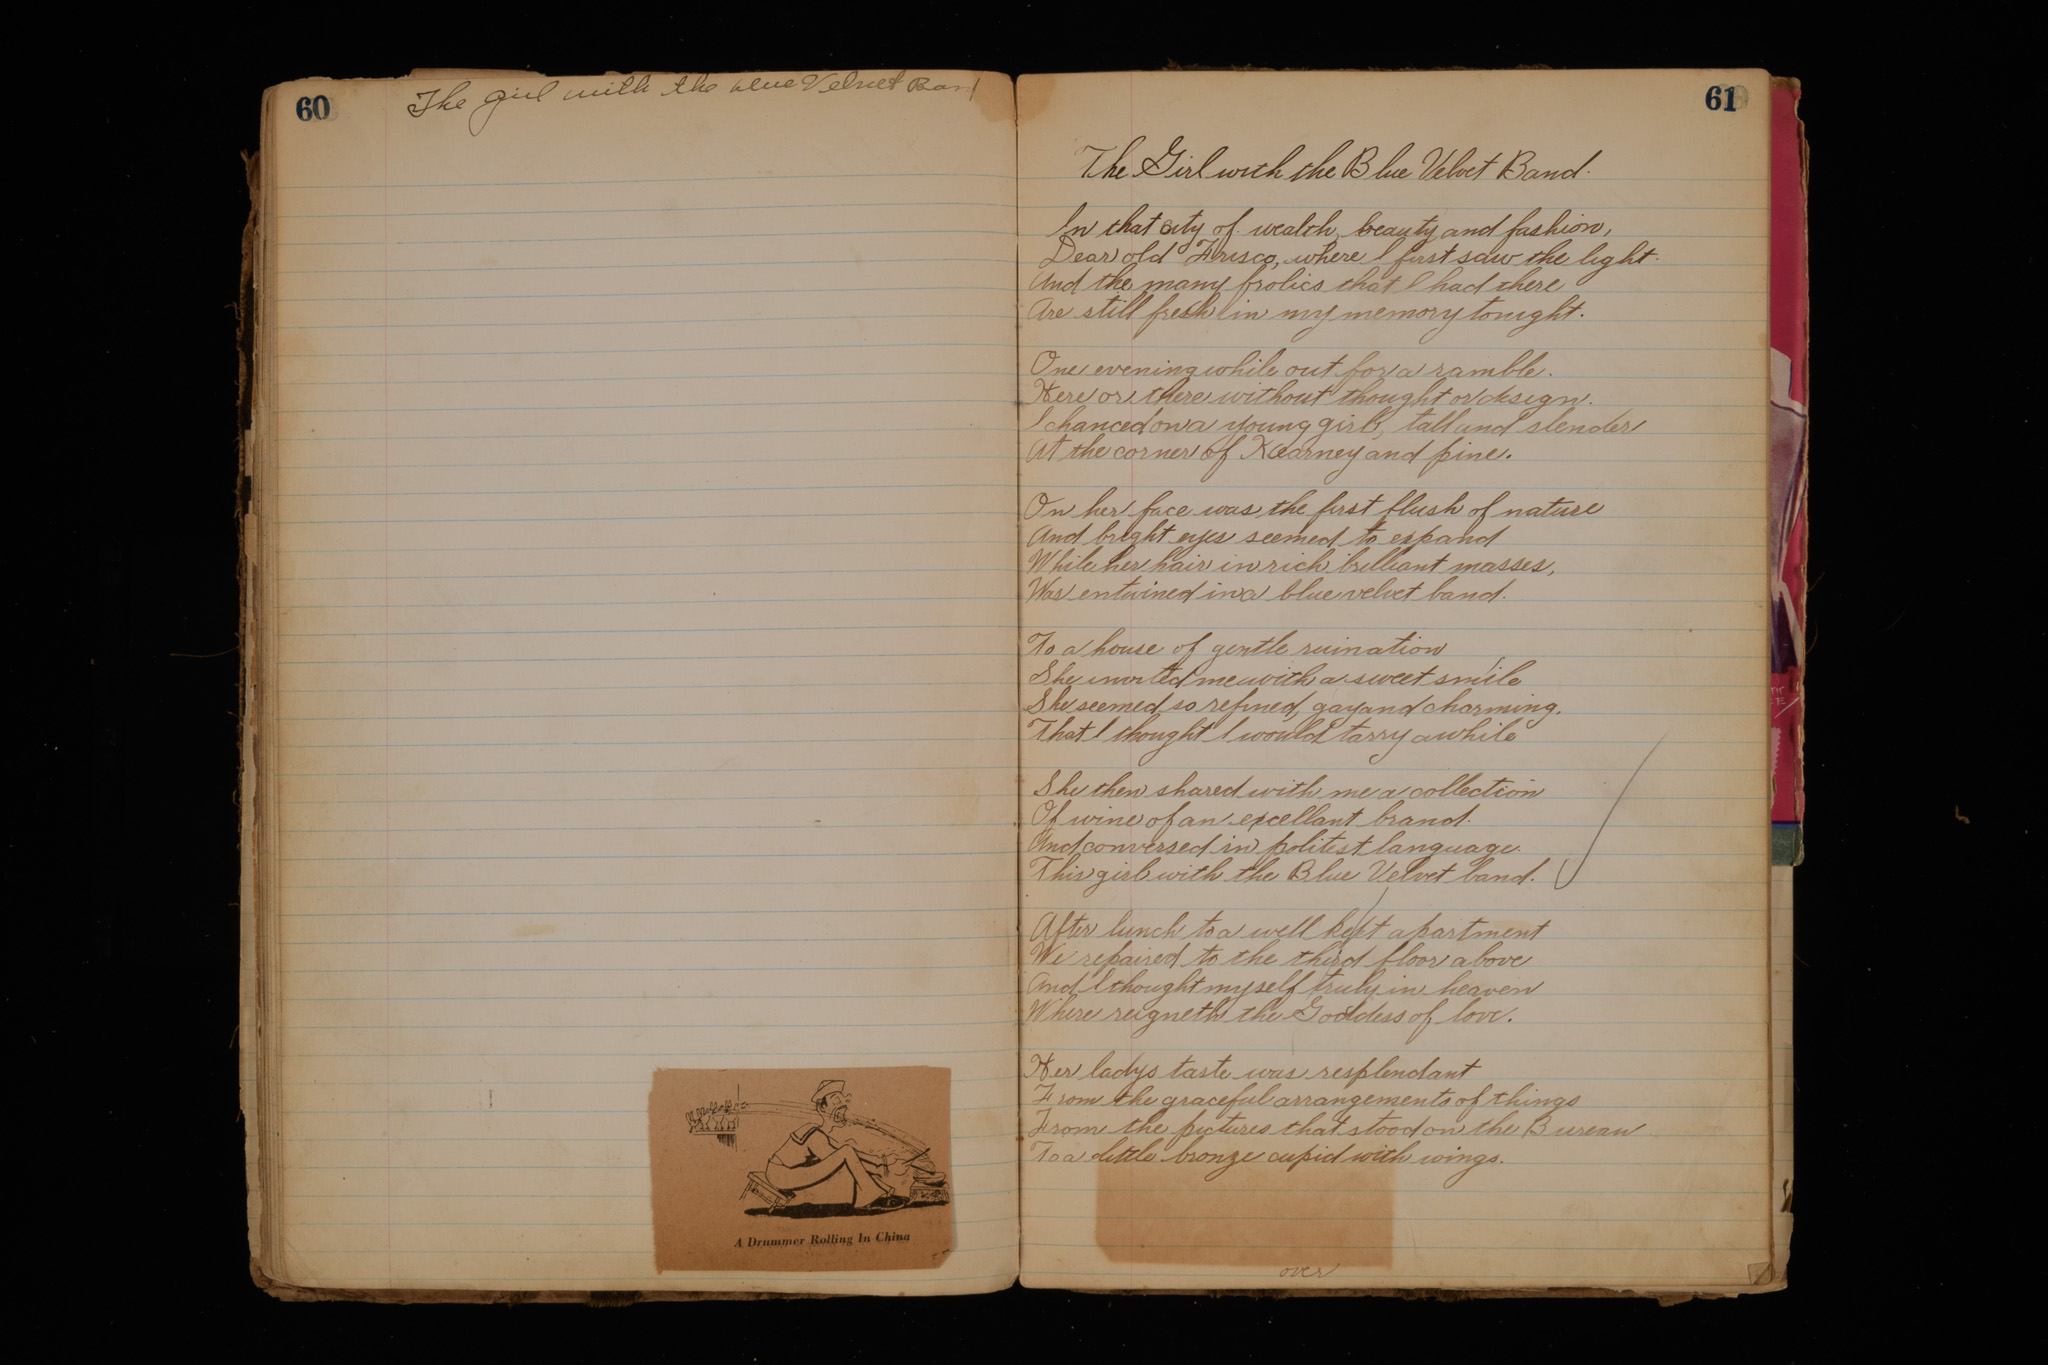 60
The girl with the blue Velvet Band
A Drummer Rolling In China
61
The Girl with the Blue Velvet Band.
In that city of wealth, beauty and fashion,
Dear old Frisco, where I first saw the light.
And the many frolics that I had there
Are still fresh in my memory tonight.
One evening while out for a ramble.
Here or there without thought or design.
I chanced on a young girl, tall and slender
At the corner of Kearney and pine.
On her face was the first flush of nature
And bright eyes seemed to expand
While her hair in rich brilliant masses,
Was entwined in a blue velvet band.
To a house of gentle ruination
She invited me with a sweet smile
She seemed so refined, gay and charming.
That I thought I would tarry awhile
She then shared with me a collection
Of wine of an excellant brand.
And conversed in politest language.
This girl with the Blue Velvet band.
After lunch to a well kept apartment
We repaired to the third floor above
And I thought myself truly in heaven
Where reigneth the Goddess of love.
Her ladys taste was resplendant
From the graceful arrangements of things
From the pictures that stood on the Bureau
To a little bronze cupid with wings.
over